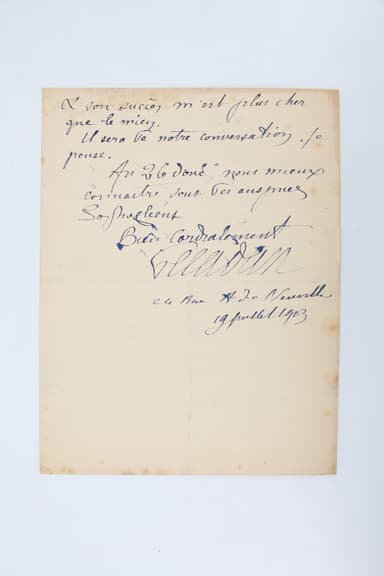 & son succès m'est plus cher
que le mien.
Il sera de notre conversation, je
pense.
Au 26 donc nous mieux
connaitre sous les auspices
Bien Cordialement
Peladan
24 Rue A De Neuville
19 juillet 1903